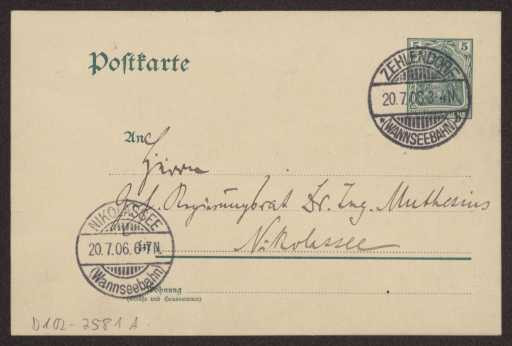 Postkarte
5 5
ZEHLENDORF
20.7.06.3-4N.
*(WANNSEEBAHN)*
An
Herrn
Geh. Regierungsrat Dr. Ing. Muthesius
NIKOLASSEE
20.7.06. 6-7N
(Wannseebahn)
in Nikolassee
Wohnung
(Straße und Hausnummer)
D102-2581 A